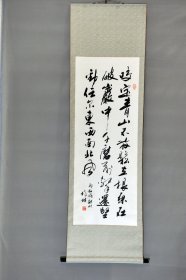 咬定青山不放鬆立根原在
破巖中千磨萬擊還堅
勁任尔東西南北風